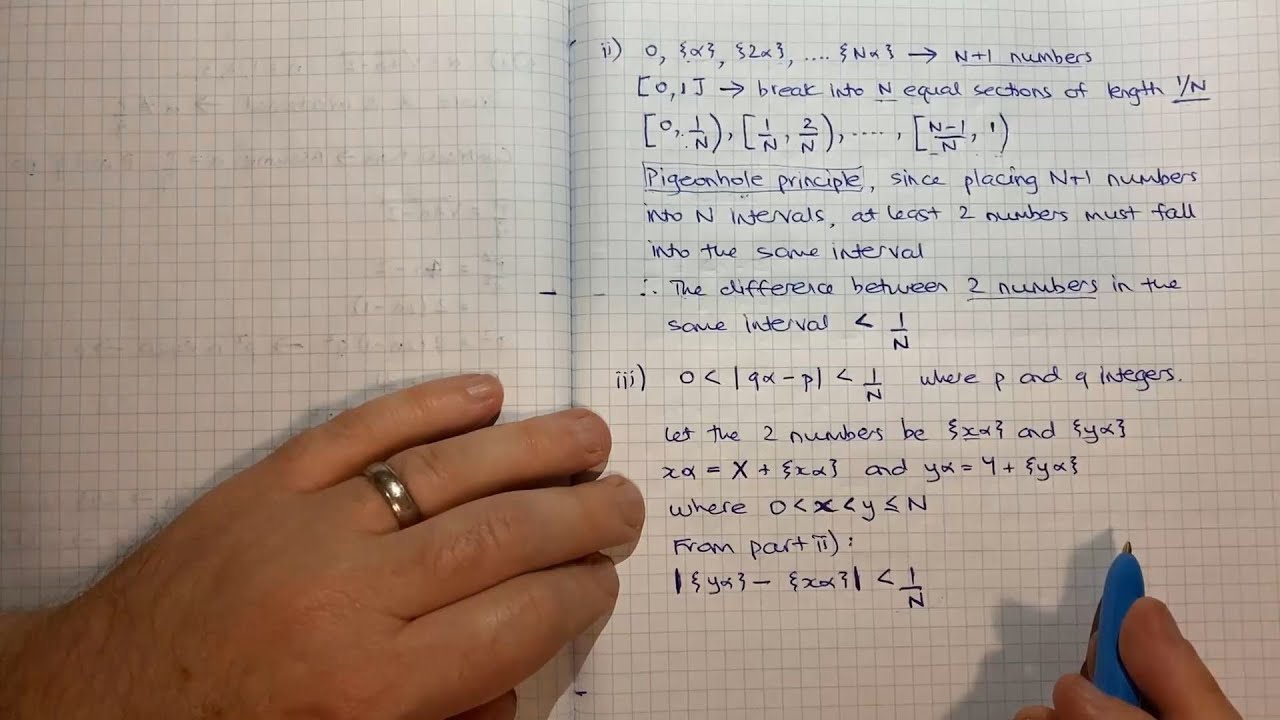 ii) 0, {α}, {2α}, .... {Nα} → N+1 numbers
[0,1] → break into N equal sections of length 1/N
[0, 1/N), [1/N, 2/N), ...., [N-1/N, 1)
Pigeonhole principle, since placing N+1 numbers
into N intervals, at least 2 numbers must fall
into the same interval
∴ The difference between 2 numbers in the
same interval < 1/N
iii) 0 < |qα - p| < 1/N where p and q integers.
Let the 2 numbers be {xα} and {yα}
xα = X + {xα} and yα = Y + {yα}
where 0 < x < y ≤ N
From part ii):
|{yα} - {xα}| < 1/N